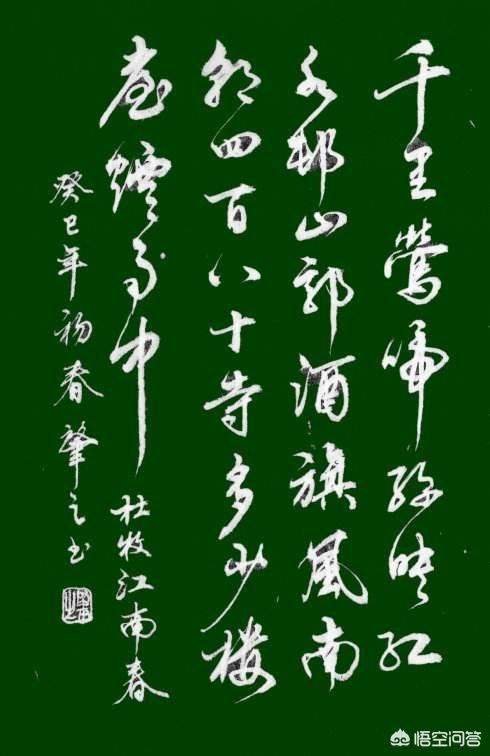 千里鶯啼绿映红
水邨山郭酒旗風南
朝四百八十寺多少楼
臺煙雨中
杜牧江南春
癸巳年初春肇之书
悟空问答